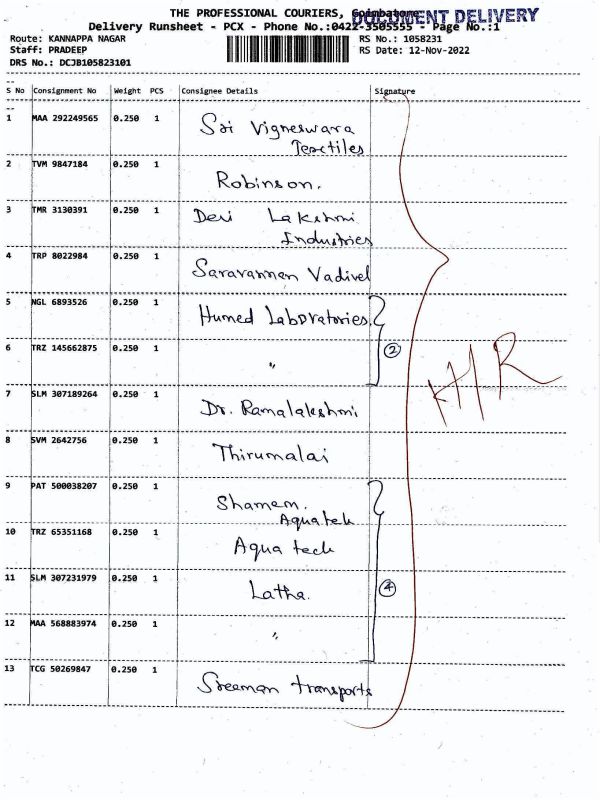 THE PROFESSIONAL COURIERS, Coimbatore
DOCUMENT DELIVERY
Delivery Runsheet - PCX - Phone No.:0422-3505555 - Page No.:1
Route: KANNAPPA NAGAR
RS No.: 1058231
Staff: PRADEEP
RS Date: 12-Nov-2022
DRS No.: DCJB105823101
S No Consignment No Weight PCS Consignee Details Signature
1 MAA 292249565 0.250 1 Sri Vigneswara
Textiles
2 TVM 9847184 0.250 1
Robinson.
3 TMR 3130391 0.250 1 Devi Lakshmi
Industries
4 TRP 8022984 0.250 1
Saravannan Vadivel
5 NGL 6893526 0.250 1 Humed Laboratories
6 TRZ 145662875 0.250 1 2
"
7 SLM 307189264 0.250 1
Dr. Ramalakshmi
8 SVM 2642756 0.250 1
Thirumalai
9 PAT 500038207 0.250 1
Shamem.
Aquatek
10 TRZ 65351168 0.250 1
Aqua teck
11 SLM 307231979 0.250 1
Latha. 4
12 MAA 568883974 0.250 1
"
13 TCG 50269847 0.250 1
Sreeman transports